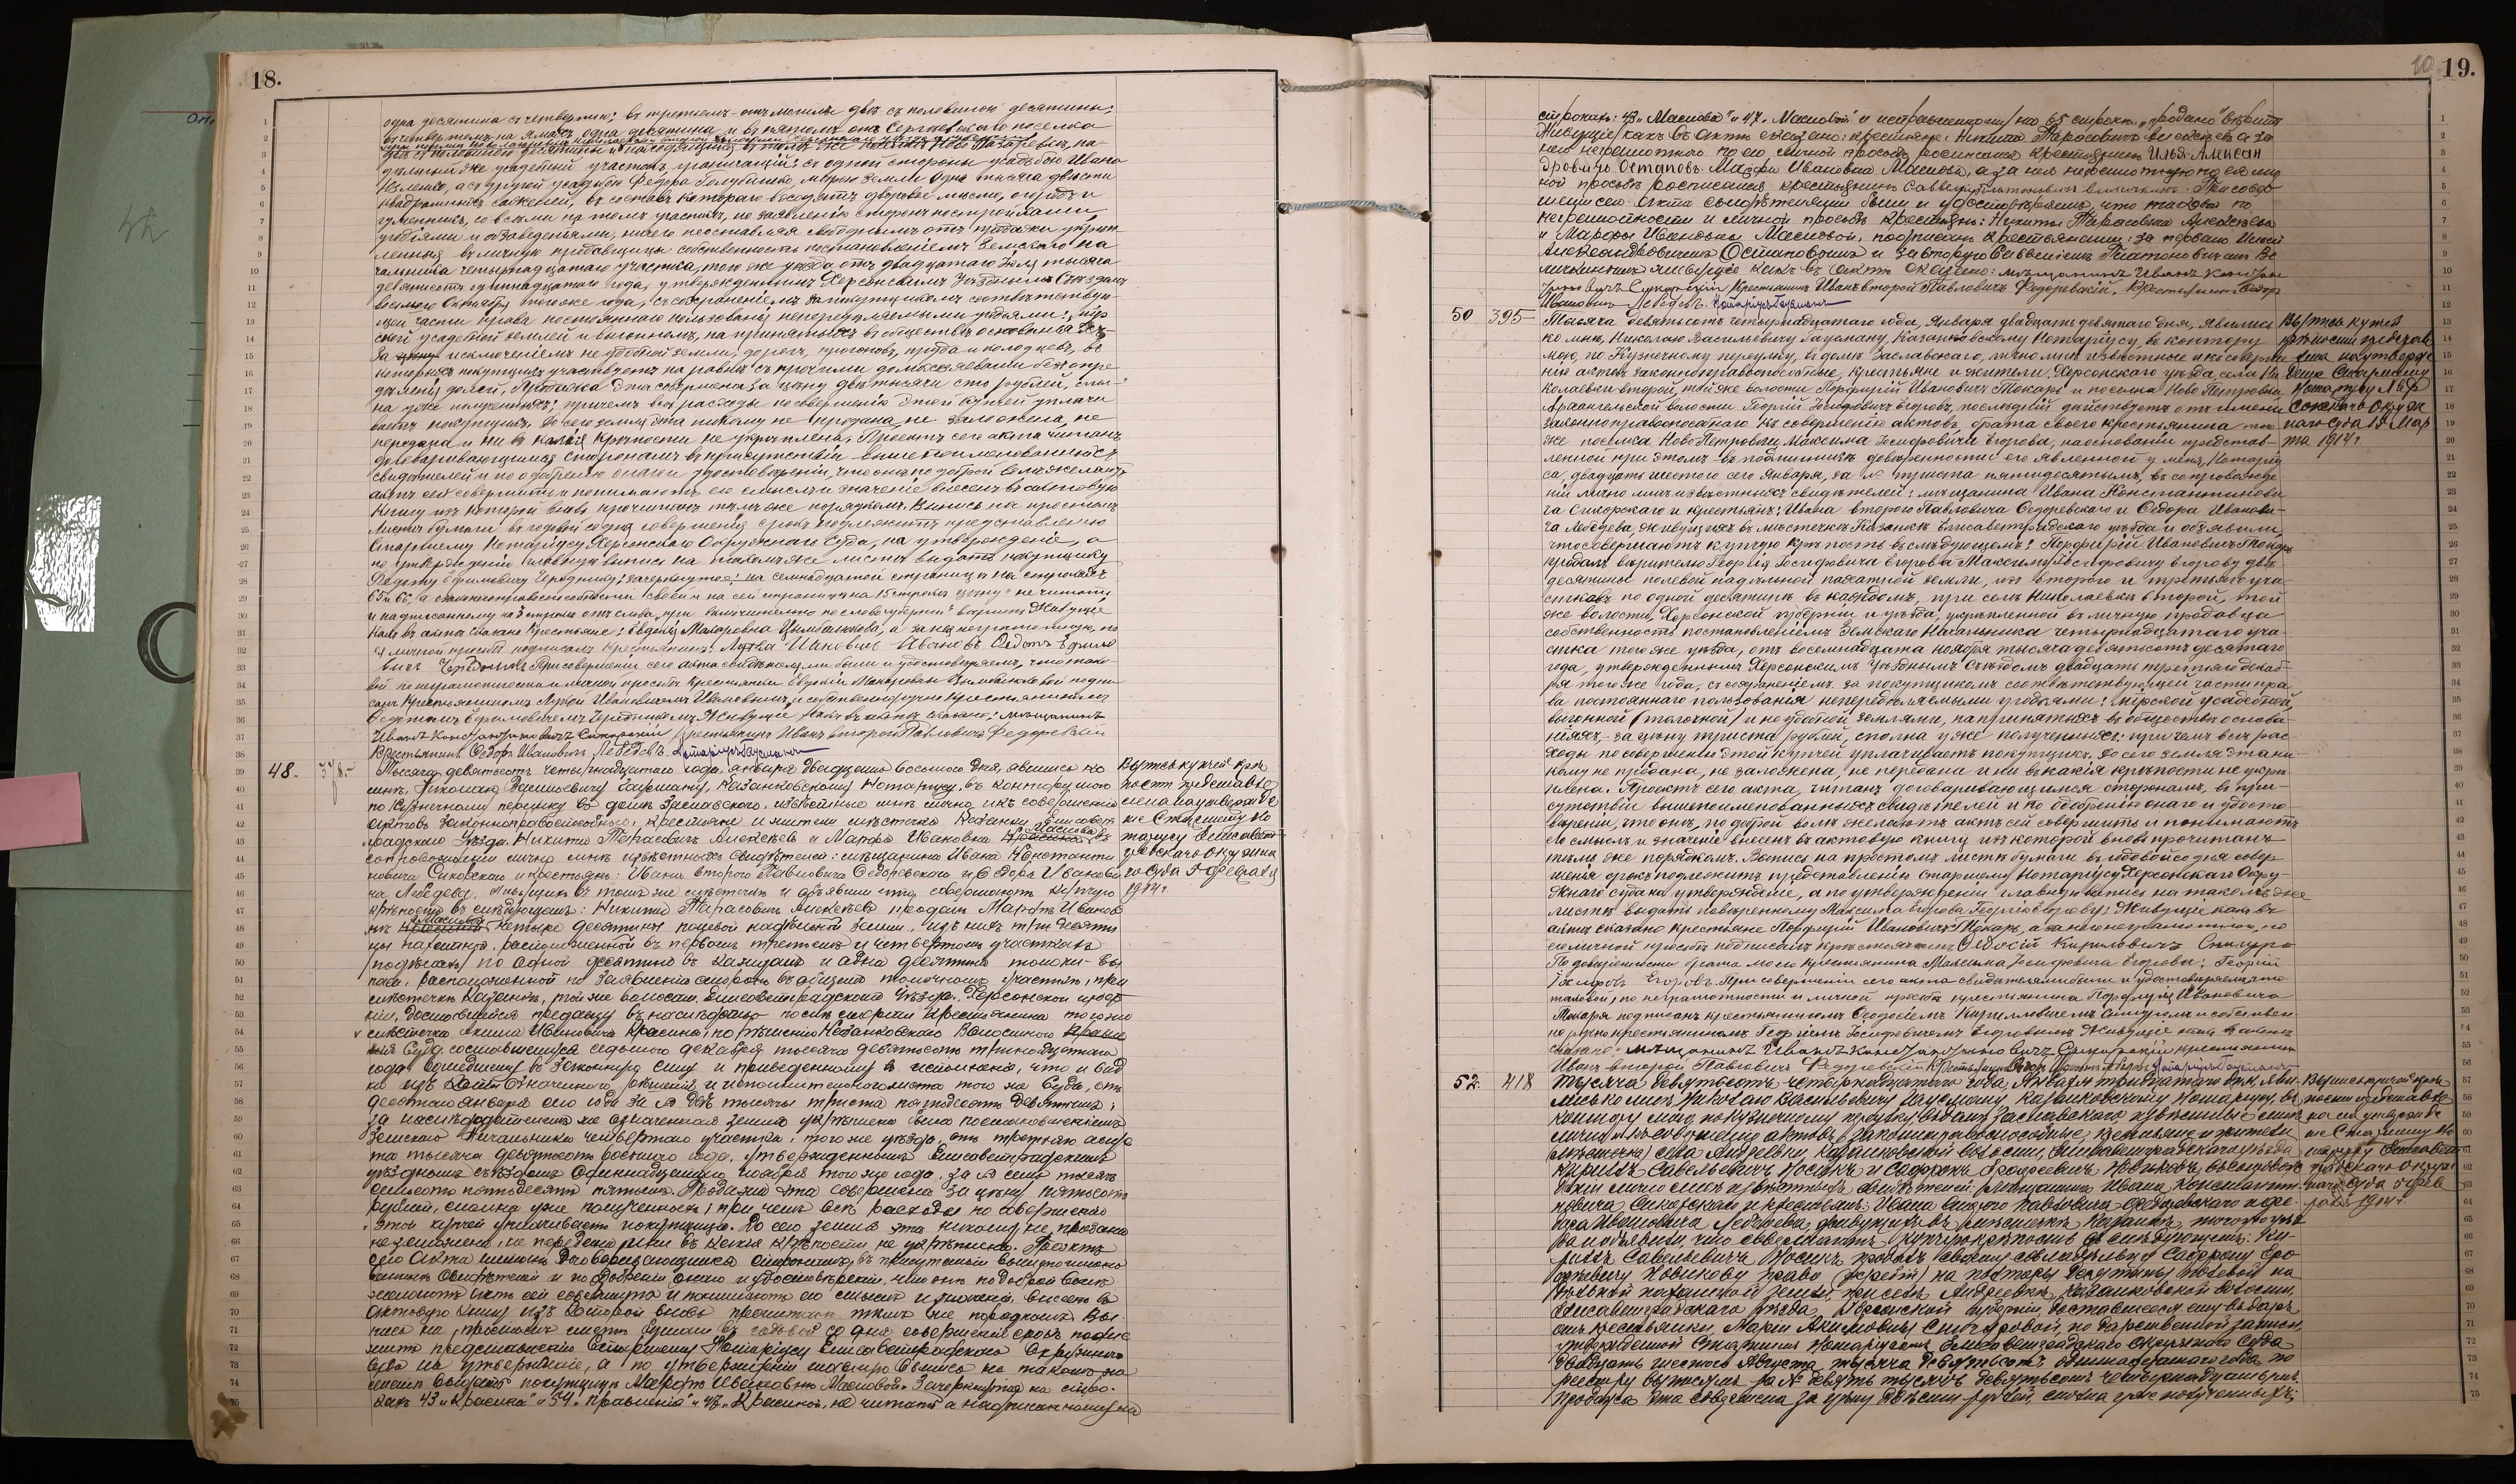 18.
одна десятина съ четвертью; въ третьемъ - отъ могилы двѣ съ половиною десятины;
въ четвертомъ на ямахъ, одна десятина и въ пятомъ отъ Сергѣевскаго поселка
двѣ съ половиною десятины и находящійся въ томъ же поселкѣ Ново Назаревкѣ, на
дѣльный же усадебный участокъ, граничащій: съ одной стороны усадьбою Ивана
а съ другой усадьбою Федора Голубенко, мѣрою земли одна тысяча двѣсти
квадратныхъ саженей, въ составъ котораго входятъ дворовое мѣсто, огородъ и
гуменникъ, со всѣми на томъ участкѣ, по заявленію сторонъ постройками,
угодіями и обзаведеніями, ничего не оставляя свободнымъ отъ продажи укрѣп
ленныя въ личную продавщицы собственность постановленіемъ Земскаго На
чальника четырнадцатаго участка, того же уѣзда отъ двадцатаго Іюля тысяча
девятьсотъ одиннадцатаго года, утвержденнымъ Херсонскимъ Уѣзднымъ Съѣздомъ
восьмого Октября того же года, съ сохраненіемъ за покупщикомъ соотвѣтствую
щей части права постояннаго пользованія непередѣляемыми угодьями: мір
ской усадебной землей и выгономъ, на принятыхъ въ обществѣ основаніяхъ
за исключеніемъ неудобной земли, дорогъ, прогоновъ, пруда и колодцевъ, въ
которыхъ покупщикъ участвуетъ на равнѣ съ прочими домохозяевами безъ опре
дѣленія долей. Продажа эта совершена за цѣну двѣ тысячи сто рублей, спол
на уже полученныхъ; причемъ всѣ расходы по совершенію этой купчей уплачи
ваетъ покупщикъ. До сего земля эта никому не продана, не заложена, не
передана и ни въ какія крѣпости не укрѣплена. Проектъ сего акта читанъ
договаривающимся сторонамъ въ присутствіи вышепоименованныхъ
свидѣтелей и по одобреніи онаго и удостовѣреніи, что они по доброй волѣ желаютъ
актъ сей совершить и понимаютъ его смыслъ и значеніе внесенъ въ актовую
книгу изъ которой вновь прочитанъ тѣмъ же порядкомъ. Выпись на простомъ
листѣ бумаги въ годовой со дня совершенія срокъ подлежитъ представленію
Старшему Нотаріусу Херсонскаго Окружнаго Суда, на утвержденіе, а
по утвержденіи главную выпись на такомъ же листѣ выдать покупщику
Федоту Ефимовичу Чередникову; зачеркнутое: на семнадцатой страницѣ на строкахъ
Какъ въ актѣ сказано Крестьяне: Евдокія Макаровна Цымбалюкова, а за нее неграмотную, по
ея личной просьбѣ подписалъ Крестьянинъ: Лука Ивановичъ Ивановъ Федотъ Ефимо
вичъ При совершеніи сего акта свидѣтелями были и удостовѣряемъ, что тако
вой по неграмотности и личной просьбѣ Крестьянки Евдокіи Макаровны Цымбалюковой подпи
санъ Крестьяниномъ Лукой Ивановичемъ Ивановымъ и собственноручно Крестьяниномъ
Федотомъ Ефимовичемъ Живущіе какъ въ актѣ сказано: мѣщанинъ
Иванъ Константиновичъ Сикорскій, крестьянинъ Иванъ второй Павловичъ Федоревскій
Крестьянинъ Ѳедоръ Ивановичъ Лебедевъ. Нотаріусъ Гаусманъ
48.
Тысяча девятьсотъ четырнадцатаго года, января двадцать восьмого дня, явились ко
мнѣ, Николаю Васильевичу Гаусману, Казанковскому Нотаріусу, въ контору мою
по Кузнечному переулку въ домѣ Заславскаго, извѣстные мнѣ лично и къ совершенію
актовъ законноправоспособные, крестьяне и жители мѣстечка Казанки, Елисавет
градскаго Уѣзда Никита Тарасовичъ Алексѣевъ и Марфа Ивановна Маслова въ
сопровожденіи лично мнѣ извѣстныхъ свидѣтелей: мѣщанина Ивана Константи
новича Сикорскаго и крестьянъ: Ивана второго Павловича Федоревскаго и Ѳедора Иванови
ча Лебедева, живущихъ въ томъ же мѣстечкѣ и объявили что совершаютъ купчую
крѣпость въ слѣдующемъ: Никита Тарасовичъ Алексѣевъ продалъ Марфѣ Иванов
нѣ Масловой четыре десятины полевой надѣльной земли, изъ нихъ три десяти
ны пахатной, расположенной въ первомъ третьемъ и четвертомъ участкахъ
/подѣлахъ/ по одной десятинѣ въ каждомъ и одна десятина толоки-вы
гона, расположенной по заявленію сторонъ въ общемъ толочномъ участкѣ, при
мѣстечкѣ Казанкѣ, той же волости, Елисаветградскаго Уѣзда, Херсонской губер
ніи, доставшейся продавцу въ наслѣдство послѣ смерти Крестьянина того же
мѣстечка Акима Ивановича Красина, по рѣшенію Казанковскаго Волостного
Суда, состоявшемуся седьмого декабря тысяча девятьсотъ тринадцатаго
года вошедшему въ законную силу и приведенному въ исполненіе, что и вид
но изъ копіи означеннаго рѣшенія и исполнительнаго листа того же Суда, отъ
десятаго января сего года за № двѣ тысячи триста пятьдесятъ девятымъ;
за наслѣдодателемъ же означенная земля укрѣплена была постановленіемъ
Земскаго Начальника четвертаго участка, того же уѣзда, отъ третьяго авгус
та тысяча девятьсотъ восьмого года, утвержденнымъ Елисаветградскимъ
уѣзднымъ съѣздомъ одиннадцатаго ноября того же года, за № семь тысячъ
семьсотъ пятьдесятъ пятымъ. Продажа эта совершена за цѣну пятьсотъ
рублей, сполна уже полученныхъ, при чемъ всѣ расходы по совершенію
этой купчей уплачиваетъ покупщица. До сего земля эта никому не продана
не заложена, не передана и ни въ какія крѣпости не укрѣплена. Проектъ
сего Акта читанъ договаривающимся сторонамъ въ присутствіи вышепоимено
ванныхъ свидѣтелей и по одобреніи онаго и удостовѣреніи, что они по доброй волѣ
желаютъ актъ сей совершить и понимаютъ его смыслъ и значеніе внесенъ въ
актовую книгу изъ которой вновь прочитанъ тѣмъ же порядкомъ. Вы
пись на простомъ листѣ бумаги въ годовой со дня совершенія срокъ подле
житъ представленію Старшему Нотаріусу Елисаветградскаго Окружнаго
Суда на утвержденіе, а по утвержденіи главную выпись на такомъ же
листѣ выдать покупщицѣ Марфѣ Ивановнѣ Масловой. Зачеркнутое на стро-
кахъ 43 „Красина" 54 „Правленія" 47 „Красиной, не читать а надписанному на
Выпись купчей крѣ
пости представле
на на утвержде
ніе Старшему Но
таріусу Елисавет
градскаго Окружна
го Суда 5 Февраля
1914 г.
19.
строкахъ: 43 „Маслова" и 47 „Масловой" и исправленному на 65 строкѣ „продана" вѣрить
Живущіе какъ въ актѣ сказано: крестьяне: Никита Тарасовичъ Алексѣевъ а за
него неграмотнаго по его личной просьбѣ росписался Крестьянинъ Илья Алексан
дровичъ Остаповъ. Марфа Ивановна Маслова, а за нея неграмотную по ея лич
ной просьбѣ росписался крестьянинъ Савелій Платоновичъ Величкинъ. При совер
шеніи сего акта свидѣтелями были и удостовѣряемъ, что таковой по
неграмотности и личной просьбѣ крестьянъ: Никиты Тарасовича Алексѣева
и Марфы Ивановны Масловой, подписанъ крестьянами: за перваго Ильей
Александровичемъ Остаповымъ и за вторую Савеліемъ Платоновичемъ Ве
личкинымъ живущіе какъ въ актѣ сказано: мѣщанинъ Иванъ Констан
тиновичъ Сикорскій Крестьянинъ Иванъ второй Павловичъ Федоревскій. Крестьянинъ Ѳедоръ
Ивановичъ Лебедевъ. Нотаріусъ Гаусманъ
50 395
Тысяча девятьсотъ четырнадцатаго года, Января двадцать девятаго дня, явились
ко мнѣ, Николаю Васильевичу Гаусману, Казанковскому Нотаріусу, въ контору
мою, по Кузнечному переулку, въ домѣ Заславскаго, лично мнѣ извѣстные и къ соверше
нію актовъ законноправоспособные, крестьяне и жители Херсонскаго уѣзда, села Ни
колаевки второй, той же волости Порфирій Ивановичъ Токарь и поселка Ново Петровки
Архангельской волости Георгій Іосифовичъ Егоровъ, послѣдній дѣйствуетъ отъ имени
законноправоспособнаго къ совершенію актовъ, брата своего крестьянина того
же поселка Ново Петровки, Максима Іосифовича Егорова, на основаніи представ-
ленной при этомъ въ подлинникѣ довѣренности его явленной у меня, Нотаріу
са, двадцать шестого сего Января, за № триста пятидесятымъ, въ сопровожде
ніи лично мнѣ извѣстныхъ свидѣтелей: мѣщанина Ивана Константинови
ча Сикорскаго и крестьянъ: Ивана второго Павловича Федоревскаго и Ѳедора Иванови-
ча Лебедева, живущихъ въ мѣстечкѣ Казанкѣ Елисаветградскаго уѣзда и объявили,
что совершаютъ купчую крѣпость въ слѣдующемъ: Порфирій Ивановичъ Токарь
продалъ вѣрителю Георгія Іосифовича Егорова Максиму Іосифовичу Егорову двѣ
десятины полевой надѣльной пахатной земли, изъ второго и третьяго уча
стковъ по одной десятинѣ въ каждомъ, при селѣ Николаевкѣ второй, той
же волости, Херсонской губерніи и уѣзда, укрѣпленной въ личную продавца
собственность постановленіемъ Земскаго Начальника четырнадцатаго уча
стка того же уѣзда, отъ восемнадцатаго ноября тысяча девятьсотъ десятаго
года, утвержденнымъ Херсонскимъ Уѣзднымъ Съѣздомъ двадцать третьяго декаб
ря того же года, съ сохраненіемъ за покупщикомъ соотвѣтствующей части пра
ва постояннаго пользованія непередѣляемыми угодьями: мірской усадебной,
выгонной /толочной/ и неудобной землями, на принятыхъ въ обществѣ основа
ніяхъ, за цѣну триста рублей, сполна уже полученныхъ; причемъ всѣ рас
ходы по совершенію этой купчей уплачиваетъ покупщикъ. До сего земля эта ни
кому не продана, не заложена, не передана и ни въ какія крѣпости не укрѣ
плена. Проектъ сего акта, читанъ договаривающимся сторонамъ, въ при
сутствіи вышепоименованныхъ свидѣтелей и по одобреніи онаго и удосто
вѣреніи, что они, по доброй волѣ желаютъ актъ сей совершить и понимаютъ
его смыслъ и значеніе внесенъ въ актовую книгу изъ которой вновь прочитанъ
тѣмъ же порядкомъ. Выпись на простомъ листѣ бумаги въ годовой со дня совер
шенія срокъ подлежитъ представленію Старшему Нотаріусу Херсонскаго Окру-
жнаго Суда на утвержденіе, а по утвержденіи главную выпись на такомъ же
листѣ выдать повѣренному Максима Егорова Георгію Егорову; Живущіе какъ въ
актѣ сказано Крестьяне Порфирій Ивановичъ Токарь, а за него неграмотнаго, по
его личной просьбѣ подписалъ крестьянинъ Ѳедосій Кириловичъ
По довѣренности брата моего крестьянина Максима Іосифовича Егорова: Георгій
Іосифовъ Егоровъ. При совершеніи сего акта свидѣтелями были и удостовѣряемъ, что
таковой, по неграмотности и личной просьбѣ крестьянина Порфирія Ивановича
Токаря подписанъ крестьяниномъ Ѳеодосіемъ Кирилловичемъ и собствен
норучно крестьяниномъ Георгіемъ Іосифовичемъ Егоровымъ Живущіе какъ въ актѣ
сказано: мѣщанинъ Иванъ Константиновичъ Сикорскій крестьянинъ
Иванъ второй Павловичъ Федоревскій Крестьянинъ Ѳедоръ Ивановичъ Лебедевъ. Нотаріусъ Гаусманъ
Выпись купчей
крѣпости представ
лена на утверж
деніе Старшему
Нотаріусу Хер
сонскаго Окруж
наго Суда 15 Мар
та 1914 г.
52. 418
Тысяча девятьсотъ четырнадцатаго года, Января тридцатаго дня, яви
лись ко мнѣ, Николаю Васильевичу Гаусману, Казанковскому Нотаріусу, въ
контору мою по Кузнечному переулку, въ домѣ Заславскаго, извѣстные мнѣ
лично и къ совершенію актовъ законноправоспособные, крестьяне и жители
села Андреевки, Казанковской волости, Елисаветградскаго уѣзда
Кириллъ Савельевичъ Носикъ и Сафронъ Новиковъ, въ сопровож
деніи лично мнѣ извѣстныхъ свидѣтелей: мѣщанина Ивана Константи
новича Сикорскаго и крестьянъ: Ивана второго Павловича Федоревскаго и Ѳе
дора Ивановича Лебедева, живущихъ въ мѣстечкѣ Казанкѣ, того же уѣз
да и объявили, что совершаютъ купчую крѣпость въ слѣдующемъ: Ки
риллъ Савельевичъ Носикъ, продалъ своему совладѣльцу Сафрону
Новикову право (жребій) на полторы десятины полевой на
дѣльной пахатной земли, при селѣ Андреевкѣ, Казанковской волости,
Елисаветградскаго уѣзда, Херсонской губерніи, доставшееся ему въ даръ
отъ крестьянки, Маріи Акимовны Снигуровой, по дарственной записи,
утвержденной Старшимъ Нотаріусомъ Елисаветградскаго Окружнаго Суда
двадцать шестого Августа, тысяча девятьсотъ одиннадцатаго года, по
реестру за № девять тысячъ девятьсотъ четырнадцатымъ.
Продажа эта совершена за цѣну двѣсти рублей, сполна уже полученныхъ;
Выпись купчей крѣ
пости представле
на на утвержде
ніе Старшему Но
таріусу Елисавет
градскаго Окруж
наго Суда 5 Фев
раля 1914 г.